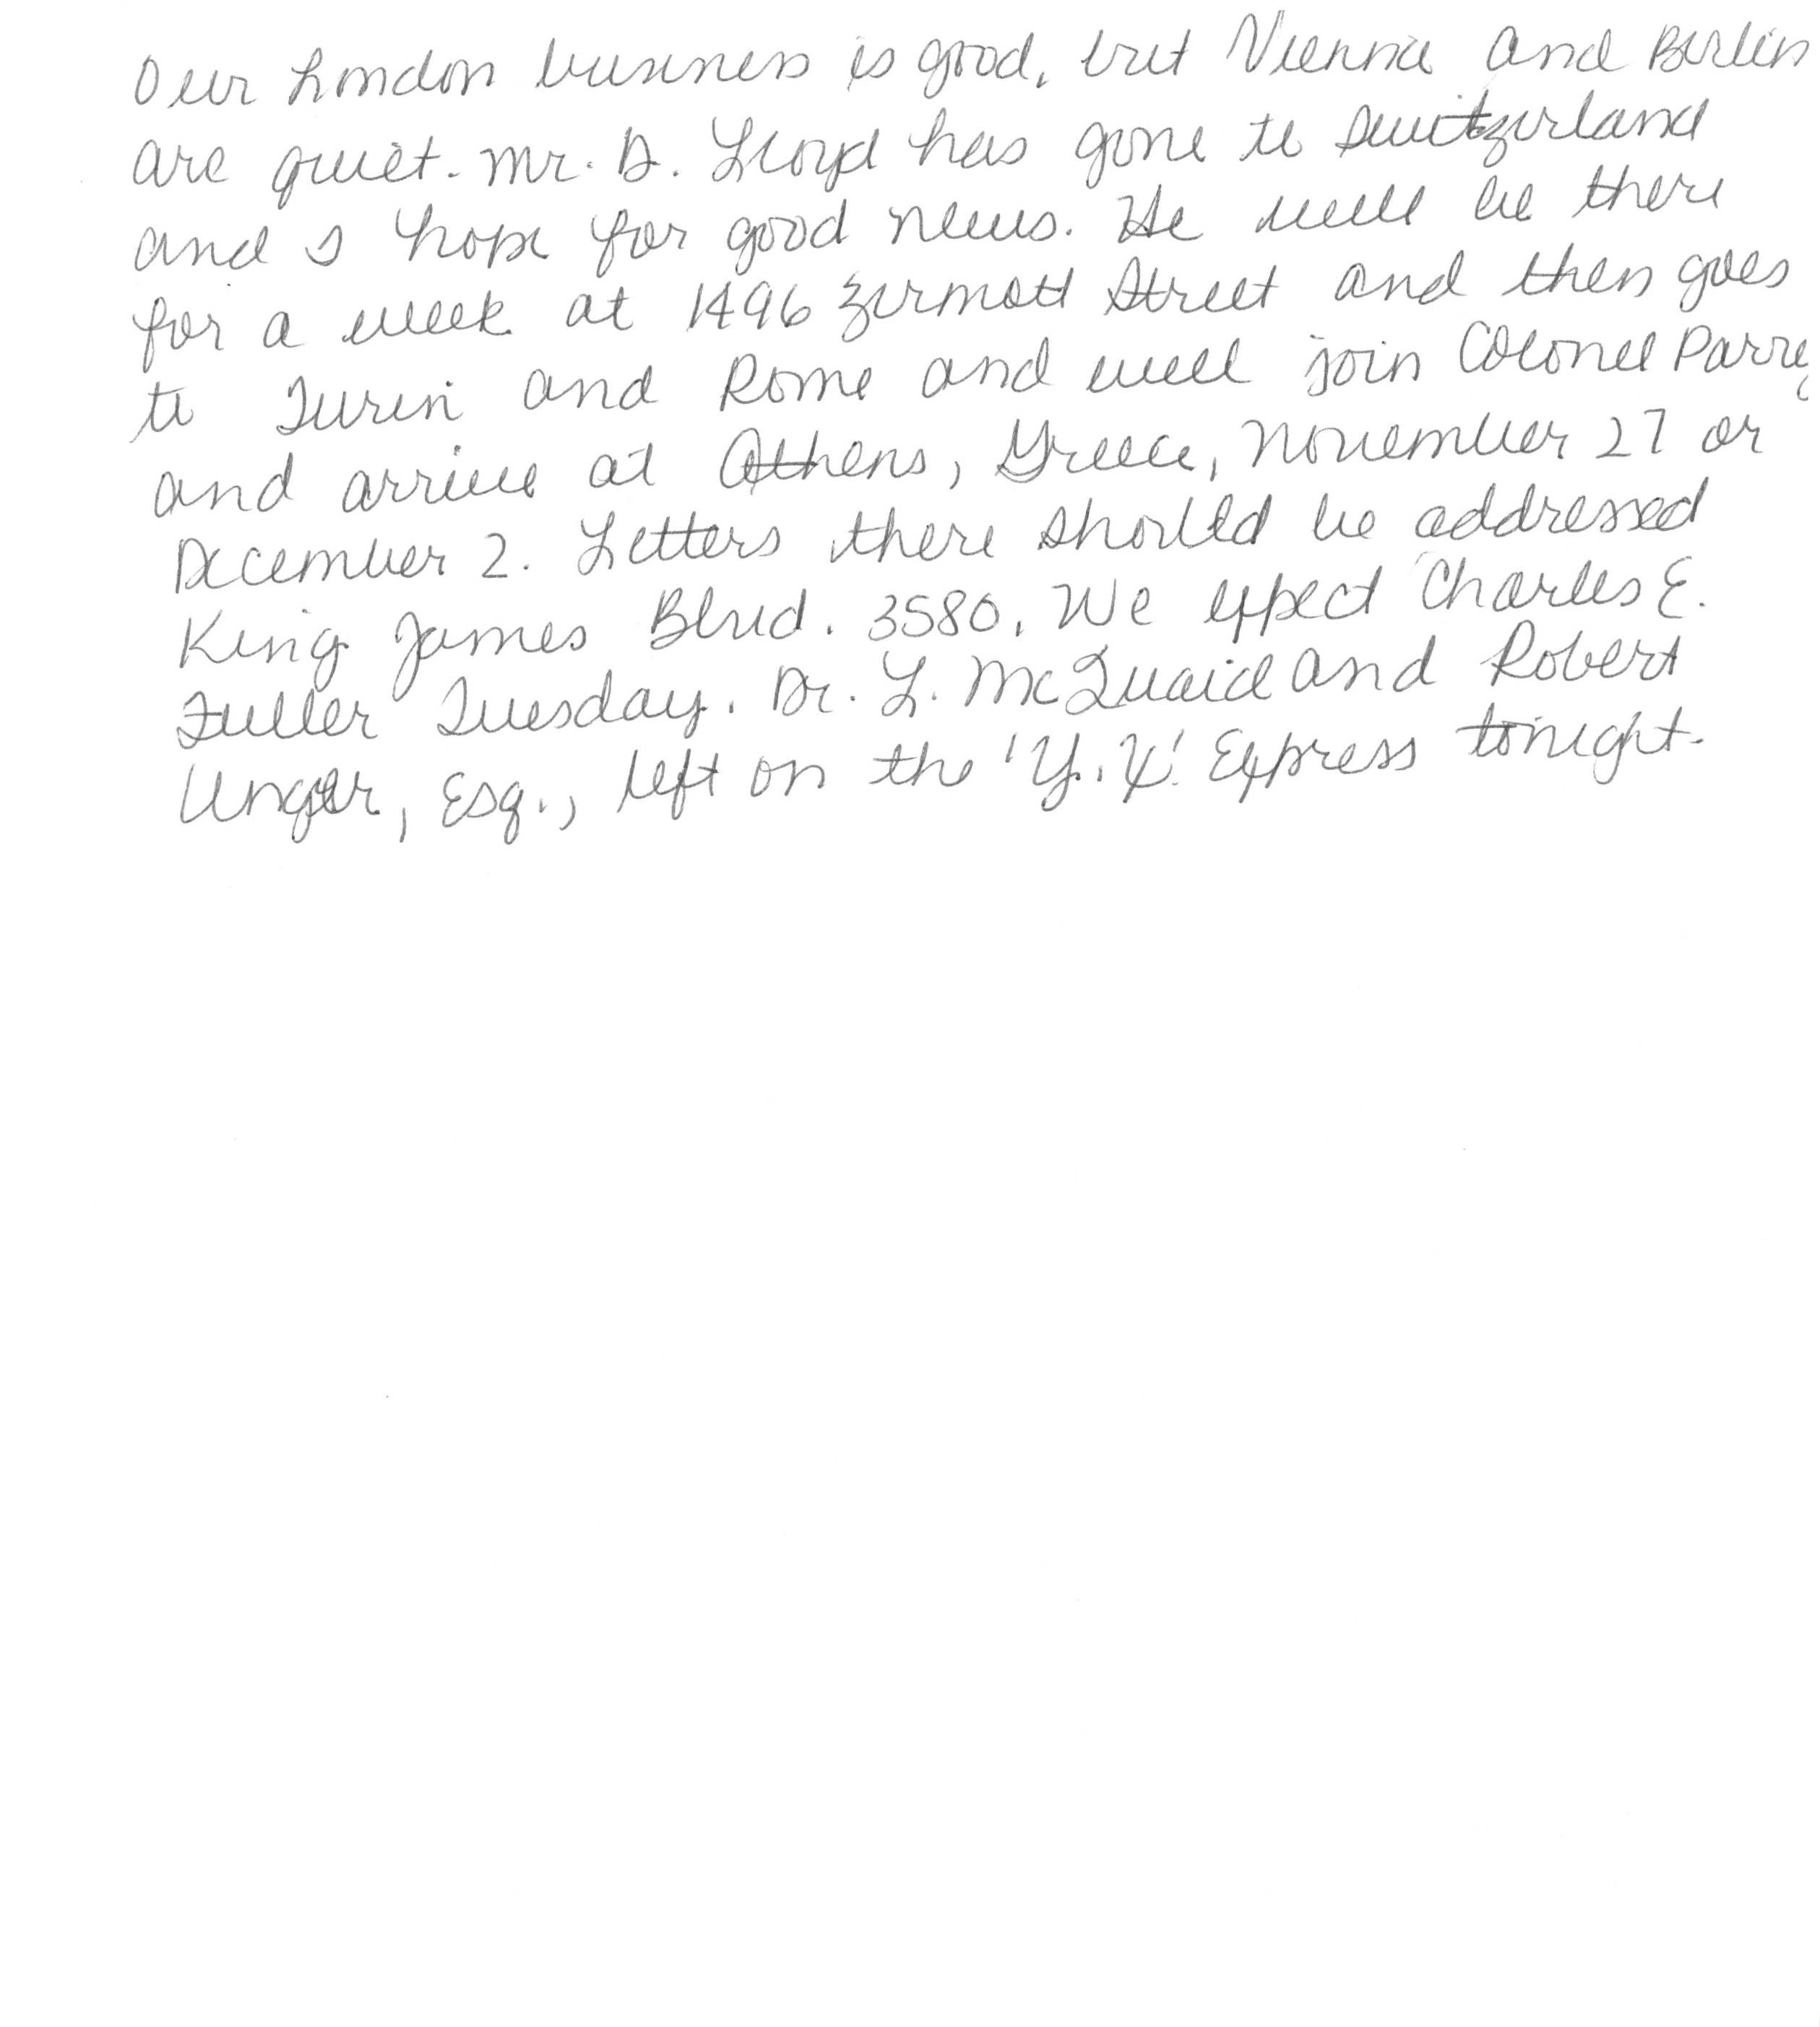 Our London business is good, but Vienna and Berlin
are quiet. Mr. D. Lloyd has gone to Switzerland
and I hope for good news. He will be there
for a week at 1496 Zermott Street and then goes
to Turin and Rome and will join Colonel Parry
and arrive at Athens, Greece, November 27 or
December 2. Letters there should be addressed
King James Blvd. 3580. We expect Charles E.
Fuller Tuesday. Dr. L. McQuaid and Robert
Unger, Esq., left on the 'Y.X.' Express tonight.